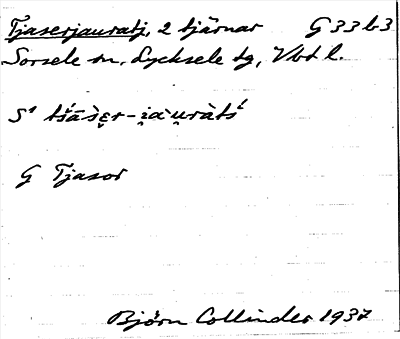 Tjaserjauratj, 2 tjärnar G 33 b 3
Sorsele sn, Lycksele tg, Vbt l.
S¹ tšá̄sɛ̮r-i̯àu̯ràtś
G Tjasor
Björn Collinder 1937